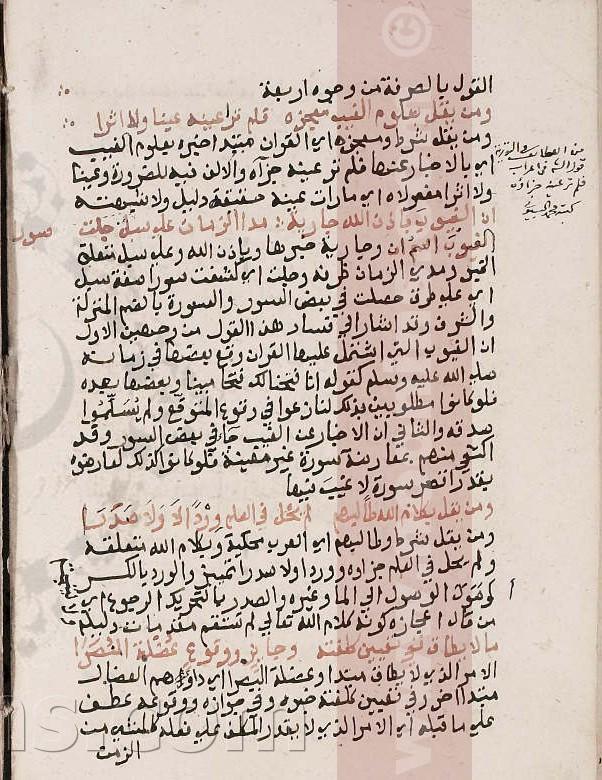 القول بالصرفة من وجوه اربعة
ومن يقل بعلوم الغيب معجزه فلم ترا عينه عينا ولا اثرا
ومن يقل شرط ومعجزه اي القران مبتدا خبره بعلوم الغيب
اي بالاخبار عنها فلم تر عينه جزآه والالف فيه للضرورة وعينا
ولا اثرا مفعولاه اي مارات عينه حقيقة دليل ولا
ان الغيوب باذن الله جارية مدا الزمان على سبل جلت سورا
الغيوب اسم ان وجارية خبرها وباذن الله وعلى سبل متعلقة
ومدي الزمان ظرفه وجلت اي كشفت سورا صفة سبل
اي على طرق حصلت في بعض السور والسورة بالضم المنزلة
والشرف وقد اشار الي فساد هذا القول من وجهين الاول
ان الغيوب التي اشتمل عليها القران وقع بعضها في زمانه
صلي الله عليه وسلم كقوله انا فتحنا لك فتحا مبينا وبعضها بعده
فلو كانوا مطلوبين بذلك لنازعوا في وقوع المتوقع ولم يسلموا
صدقه والثاني ان الاخبار عن الغيب جاء في بعض السور وقد
اكتفي منهم بمعارضة سورة غير معينة فلو كانوا كذلك لعارضوه
بقدر اقصر سورة لا غيب فيها
ومن يقل بكلام الله طالبهم لم يحل في العلم وردا لا ولا صدرا
ومن يقل شرط وطالبهم اي العرب محكية وبكلام الله متعلقه
ولم يحل في العلم جزاوه ووردا ولا صدرا تمييز والورد بالكسر
الوصول الي الما وغيره والصدر بالتحريك الرجوع اي
من قال اعجازه كونه كلام الله تعالي لم تستقم مقدمات دليله
ما لا يطاق في تعيين كلفته وجايز ووقوع عضلة البصرا
الامر الذي لا يطاق مبتدا وعضلة البصرا اي داوهم العضال
مبتدا اخر وفي تعيين كلفته خبره وفي جوازه ووقوعه عطف
علي ما قبله اي الامر الذي لا يقدر المكلف علي فعله كلفته من
الزمت